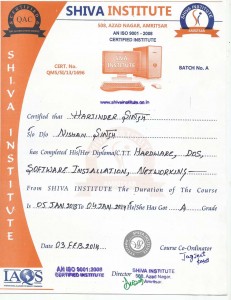 SHIVA INSTITUTE
539, AZAD NAGAR, AMRITSAR
AN ISO 9001 : 2008
CERTIFIED INSTITUTE
QAC
CERT. No.
QMS/N/13/1696
BATCH No. A
www.shivainstitute.co.in
SHIVA INSTITUTE
Certified that HARJINDER SINGH
S/o D/o NISHAN SINGH
has Completed His/Her Diploma/C.T.T. HARDWARE, DOS,
SOFTWARE INSTALLATION, NETWORKING
From SHIVA INSTITUTE The Duration of The Course
is 05 JAN 2013 To 04 JAN 2014 He/She Has Got A Grade
Date 03 FEB 2014
Course Co-Ordinator
IAQS
AN ISO 9001:2008
CERTIFIED INSTITUTE
Director
SHIVA INSTITUTE
539, Azad Nagar,
Amritsar